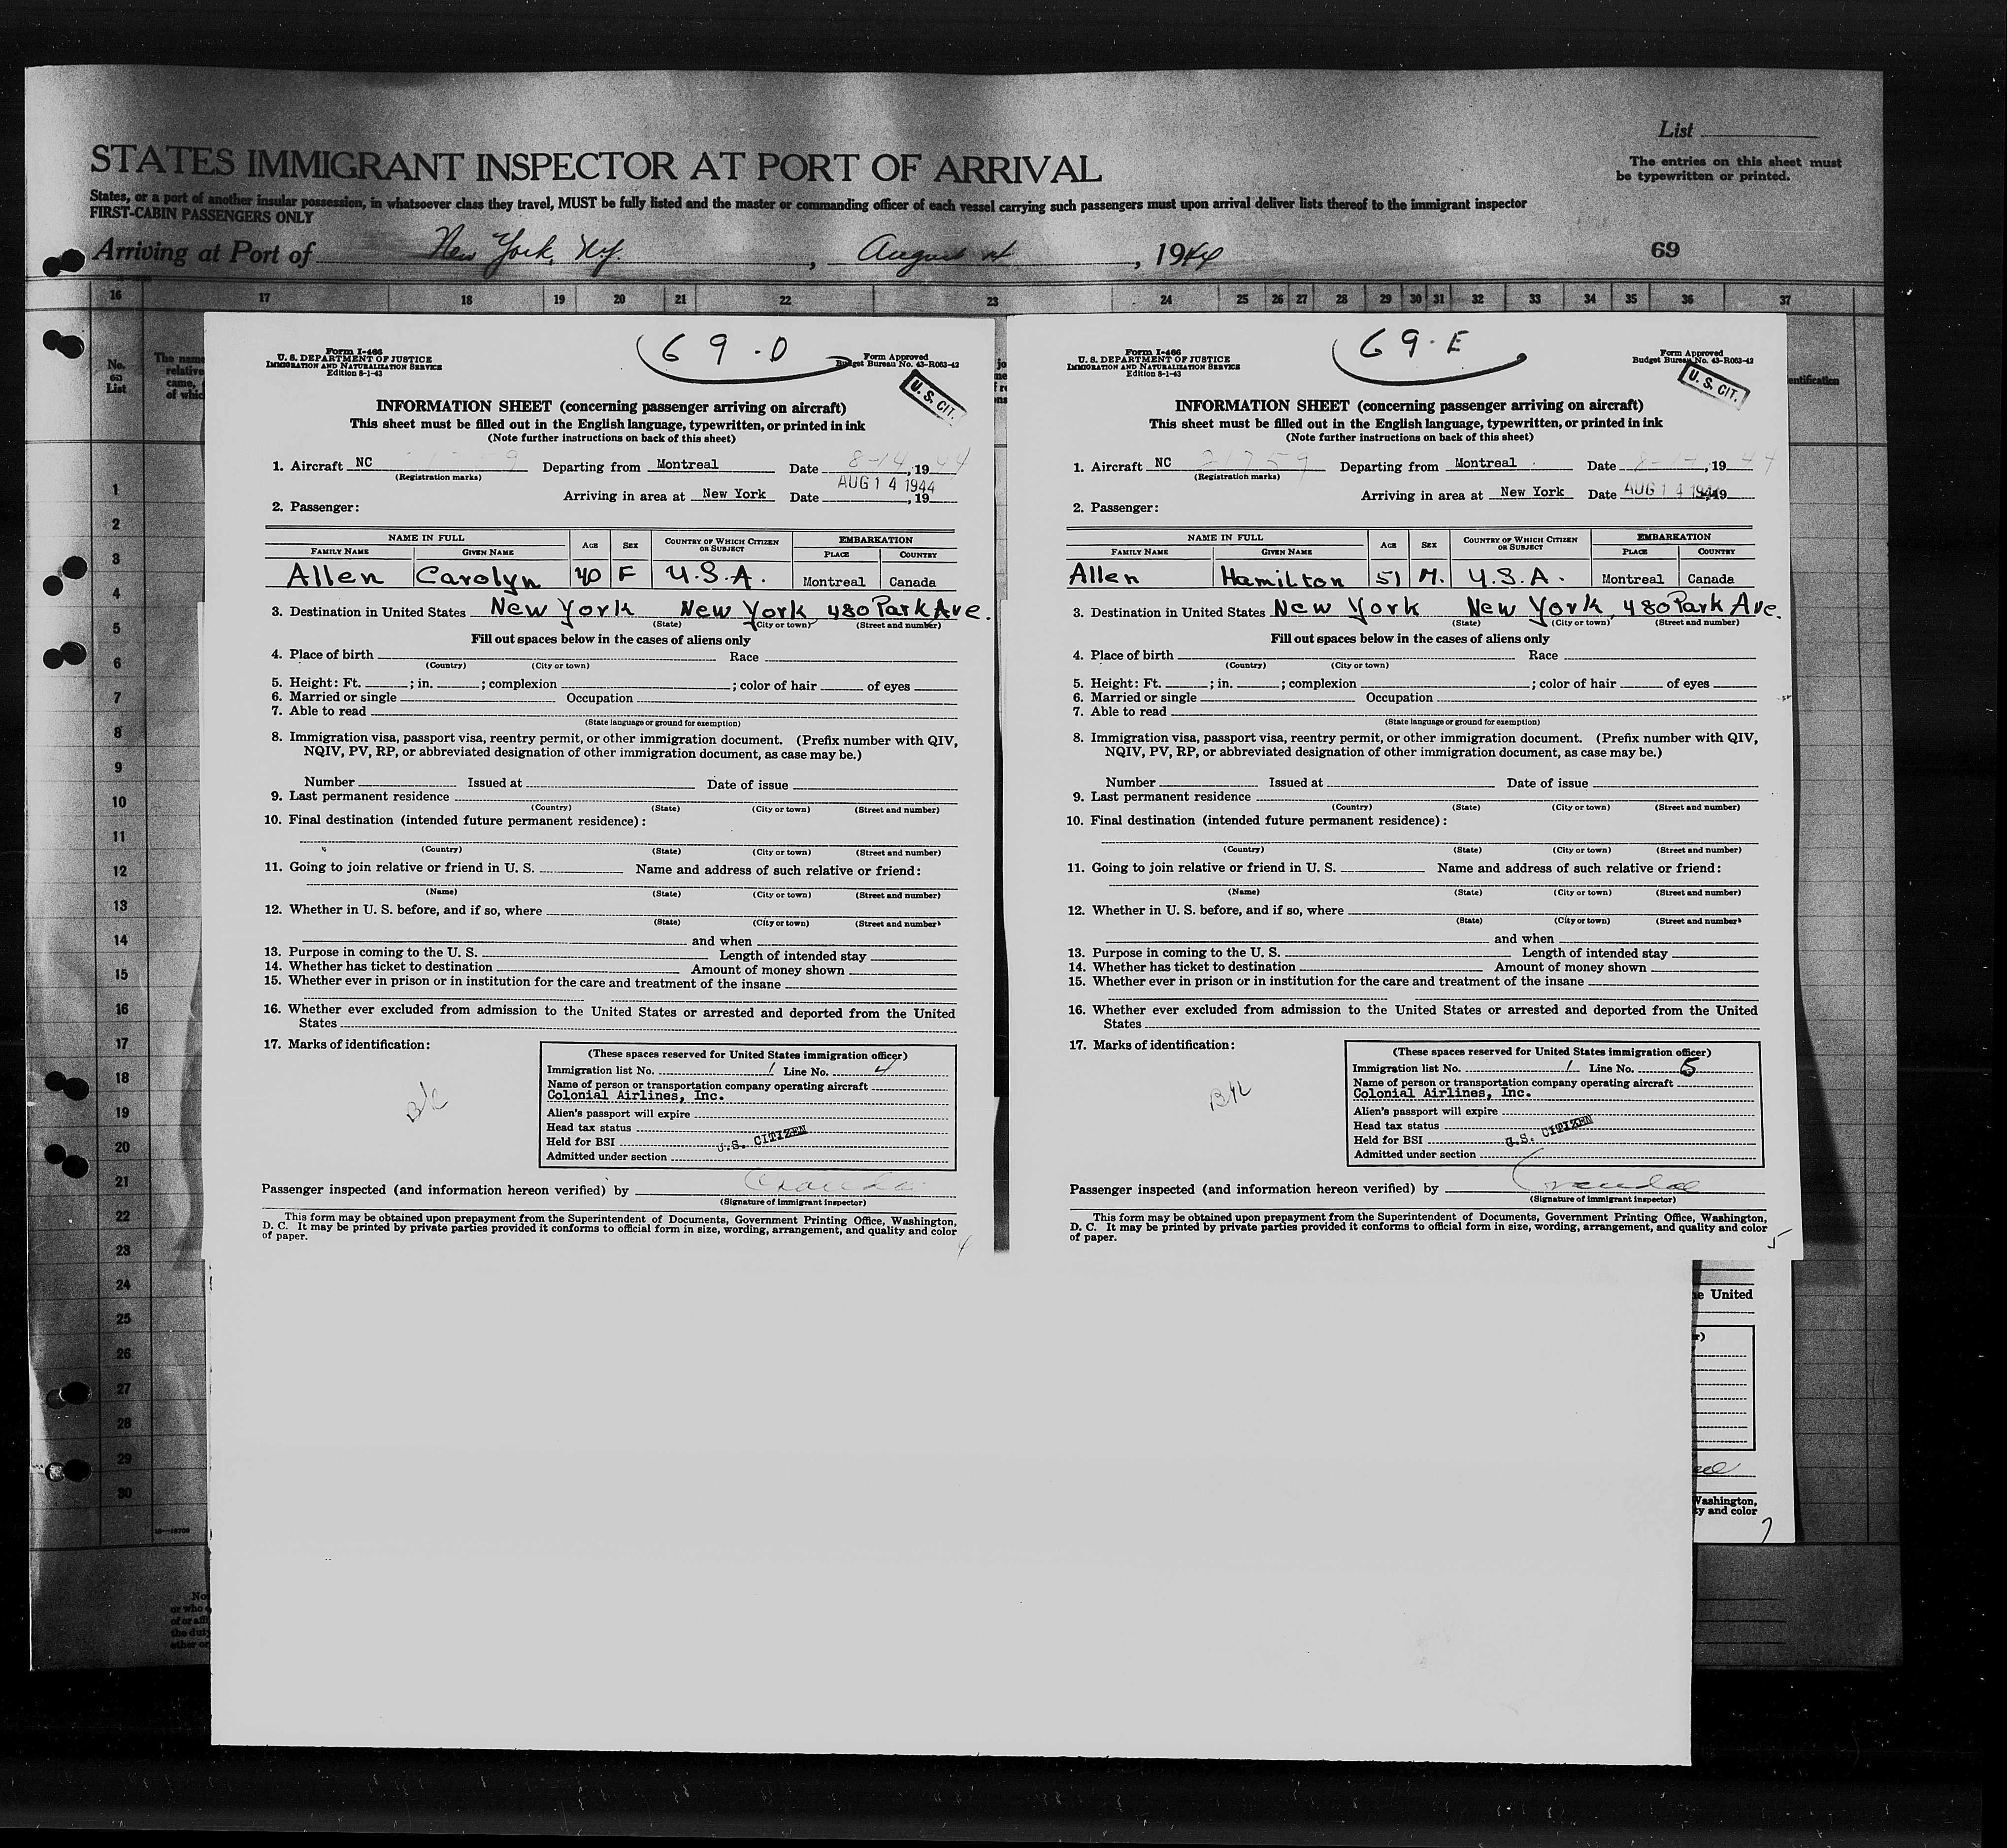 List
The entries on this sheet must
be typewritten or printed.
STATES IMMIGRANT INSPECTOR AT PORT OF ARRIVAL
States, or a port of another insular possession, in whatsoever class they travel, MUST be fully listed and the master or commanding officer of each vessel carrying such passengers must upon arrival deliver lists thereof to the immigrant inspector
FIRST-CABIN PASSENGERS ONLY
Arriving at Port of New York, N.Y., August 14, 1944 69
16 17 18 19 20 21 22 23 24 25 26 27 28 29 30 31 32 33 34 35 36 37
No. on List
The name
relative
came,
of which
entification
1
2
3
4
5
6
7
8
9
10
11
12
13
14
15
16
17
18
19
20
21
22
23
24
25
26
27
28
29
30
69-D
Form I-466
U. S. DEPARTMENT OF JUSTICE
IMMIGRATION AND NATURALIZATION SERVICE
Edition 8-1-43
Form Approved
Budget Bureau No. 43-R063-42
U. S. CIT.
INFORMATION SHEET (concerning passenger arriving on aircraft)
This sheet must be filled out in the English language, typewritten, or printed in ink
(Note further instructions on back of this sheet)
1. Aircraft NC Departing from Montreal Date 8-14, 1944
(Registration marks)
Arriving in area at New York Date AUG 14 1944, 19
2. Passenger:
NAME IN FULL AGE SEX COUNTRY OF WHICH CITIZEN OR SUBJECT EMBARKATION
FAMILY NAME GIVEN NAME PLACE COUNTRY
Allen Carolyn 40 F U.S.A. Montreal Canada
3. Destination in United States New York New York, 480 Park Ave.
(State) (City or town) (Street and number)
Fill out spaces below in the cases of aliens only
4. Place of birth Race
(Country) (City or town)
5. Height: Ft. ; in. ; complexion ; color of hair of eyes
6. Married or single Occupation
7. Able to read
(State language or ground for exemption)
8. Immigration visa, passport visa, reentry permit, or other immigration document. (Prefix number with QIV,
NQIV, PV, RP, or abbreviated designation of other immigration document, as case may be.)
Number Issued at Date of issue
9. Last permanent residence
(Country) (State) (City or town) (Street and number)
10. Final destination (intended future permanent residence):
(Country) (State) (City or town) (Street and number)
11. Going to join relative or friend in U. S. Name and address of such relative or friend:
(Name) (State) (City or town) (Street and number)
12. Whether in U. S. before, and if so, where
(State) (City or town) (Street and number)
and when
13. Purpose in coming to the U. S. Length of intended stay
14. Whether has ticket to destination Amount of money shown
15. Whether ever in prison or in institution for the care and treatment of the insane
16. Whether ever excluded from admission to the United States or arrested and deported from the United
States
17. Marks of identification:
(These spaces reserved for United States immigration officer)
Immigration list No. 1 Line No. 4
Name of person or transportation company operating aircraft
Colonial Airlines, Inc.
Alien's passport will expire
Head tax status
Held for BSI
U.S. CITIZEN
Admitted under section
Passenger inspected (and information hereon verified) by
(Signature of immigrant inspector)
This form may be obtained upon prepayment from the Superintendent of Documents, Government Printing Office, Washington,
D. C. It may be printed by private parties provided it conforms to official form in size, wording, arrangement, and quality and color
of paper.
4
69-E
Form I-466
U. S. DEPARTMENT OF JUSTICE
IMMIGRATION AND NATURALIZATION SERVICE
Edition 8-1-43
Form Approved
Budget Bureau No. 43-R063-42
U. S. CIT.
INFORMATION SHEET (concerning passenger arriving on aircraft)
This sheet must be filled out in the English language, typewritten, or printed in ink
(Note further instructions on back of this sheet)
1. Aircraft NC 21759 Departing from Montreal Date 8-14, 1944
(Registration marks)
Arriving in area at New York Date AUG 14 1944, 19
2. Passenger:
NAME IN FULL AGE SEX COUNTRY OF WHICH CITIZEN OR SUBJECT EMBARKATION
FAMILY NAME GIVEN NAME PLACE COUNTRY
Allen Hamilton 51 M. U.S.A. Montreal Canada
3. Destination in United States New York New York, 480 Park Ave.
(State) (City or town) (Street and number)
Fill out spaces below in the cases of aliens only
4. Place of birth Race
(Country) (City or town)
5. Height: Ft. ; in. ; complexion ; color of hair of eyes
6. Married or single Occupation
7. Able to read
(State language or ground for exemption)
8. Immigration visa, passport visa, reentry permit, or other immigration document. (Prefix number with QIV,
NQIV, PV, RP, or abbreviated designation of other immigration document, as case may be.)
Number Issued at Date of issue
9. Last permanent residence
(Country) (State) (City or town) (Street and number)
10. Final destination (intended future permanent residence):
(Country) (State) (City or town) (Street and number)
11. Going to join relative or friend in U. S. Name and address of such relative or friend:
(Name) (State) (City or town) (Street and number)
12. Whether in U. S. before, and if so, where
(State) (City or town) (Street and number)
and when
13. Purpose in coming to the U. S. Length of intended stay
14. Whether has ticket to destination Amount of money shown
15. Whether ever in prison or in institution for the care and treatment of the insane
16. Whether ever excluded from admission to the United States or arrested and deported from the United
States
17. Marks of identification:
(These spaces reserved for United States immigration officer)
Immigration list No. 1 Line No. 5
Name of person or transportation company operating aircraft
Colonial Airlines, Inc.
Alien's passport will expire
Head tax status
Held for BSI
U.S. CITIZEN
Admitted under section
Passenger inspected (and information hereon verified) by
(Signature of immigrant inspector)
This form may be obtained upon prepayment from the Superintendent of Documents, Government Printing Office, Washington,
D. C. It may be printed by private parties provided it conforms to official form in size, wording, arrangement, and quality and color
of paper.
5
e United
Washington,
ty and color
7
or who
the duty